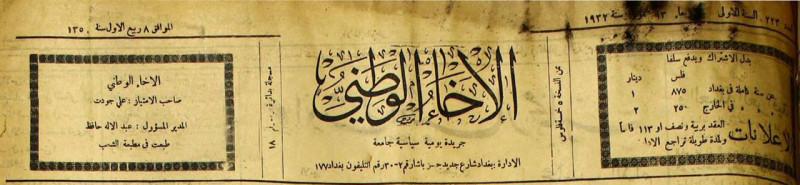 ٢٢٣ السنة الاولى
١٣
سنة ١٩٣٢
بدل الاشتراك ويدفع سلفا
فلس دينار
عن سنة كاملة في بغداد ٨٧٥ ١
في الخارج ٢٥٠ ٢
الاعلانات
العقد بربية ونصف او ١١٣ فلساً
ولمدة طويلة تراجع الادارة
عن النسخة ٥ فلوس
الإخاء الوطني
جريدة يومية سياسية جامعة
الادارة : بغداد شارع جديد حسن باشا رقم ٢-٣٠ رقم التليفون بغداد ١٧٧
مسجلة بدائرة
١٨
الموافق ٨ ربيع الاول سنة ١٣٥٠
الاخاء الوطني
صاحب الامتياز : علي جودت
المدير المسؤول : عبد الاله حافظ
طبعت في مطبعة الشعب